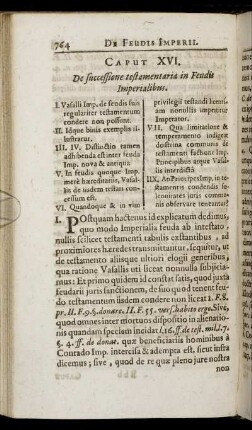 764
DE FEUDIS IMPERII.
CAPUT XVI.
De successione testamentaria in Feudis
Imperialibus.
I. Vasalli Imp. de feudis suis
regulariter testamentum
condere non possunt.
II. Idque binis exemplis il-
lustratur.
III. IV. Distinctio tamen
adhibenda est inter feuda
Imp. nova & antiqua
V. In feudis quoque Imp.
mere hæreditariis, Vasal-
lis de iisdem testari con-
cessum est.
VI. Quandoque & in vim
privilegii testandi licenti-
am nonnullis impetrita
Imperator.
VII. Qua limitatione &
temperamento indigeat
doctrina communis de
testamenti factione Imp.
Principibus atque Vasal-
lis interdictâ
IIX. An Principes Imp. in te-
stamentis condendis so-
lennitates juris commu-
nis observare teneantur?
I. POstquam hactenus id explicatum dedimus,
quo modo Imperialis feuda ab intestato,
nullis scilicet testamenti tabulis exstantibus, ad
proximiores hæredes transmittantur. Sequitur, ut
de testamento aliisque ultiori elogii generibus,
qua ratione Vasallis uti liceat nonnulla subjicia-
mus: Et primo quidem id constat satis, quod juxta
feudarii juris sanctionem, de suo quod tenent feu-
do testamentum iisdem condere non liceat 1. F. 8.
pr. II F. 9. §. donare. II. F. 55. vers. habito ergo. Sive,
quod omnes inter mortuos dispositio in alienatio-
nis quandam speciem incidat l. 16. ff. de test. mil. l. 7.
§. 4. ff. do donat. quæ beneficiariis hominibus à
Conrado Imp. interesia & adempta est, sicut infra
dicemus; sive, quod de re qua pleno jure nostra
non